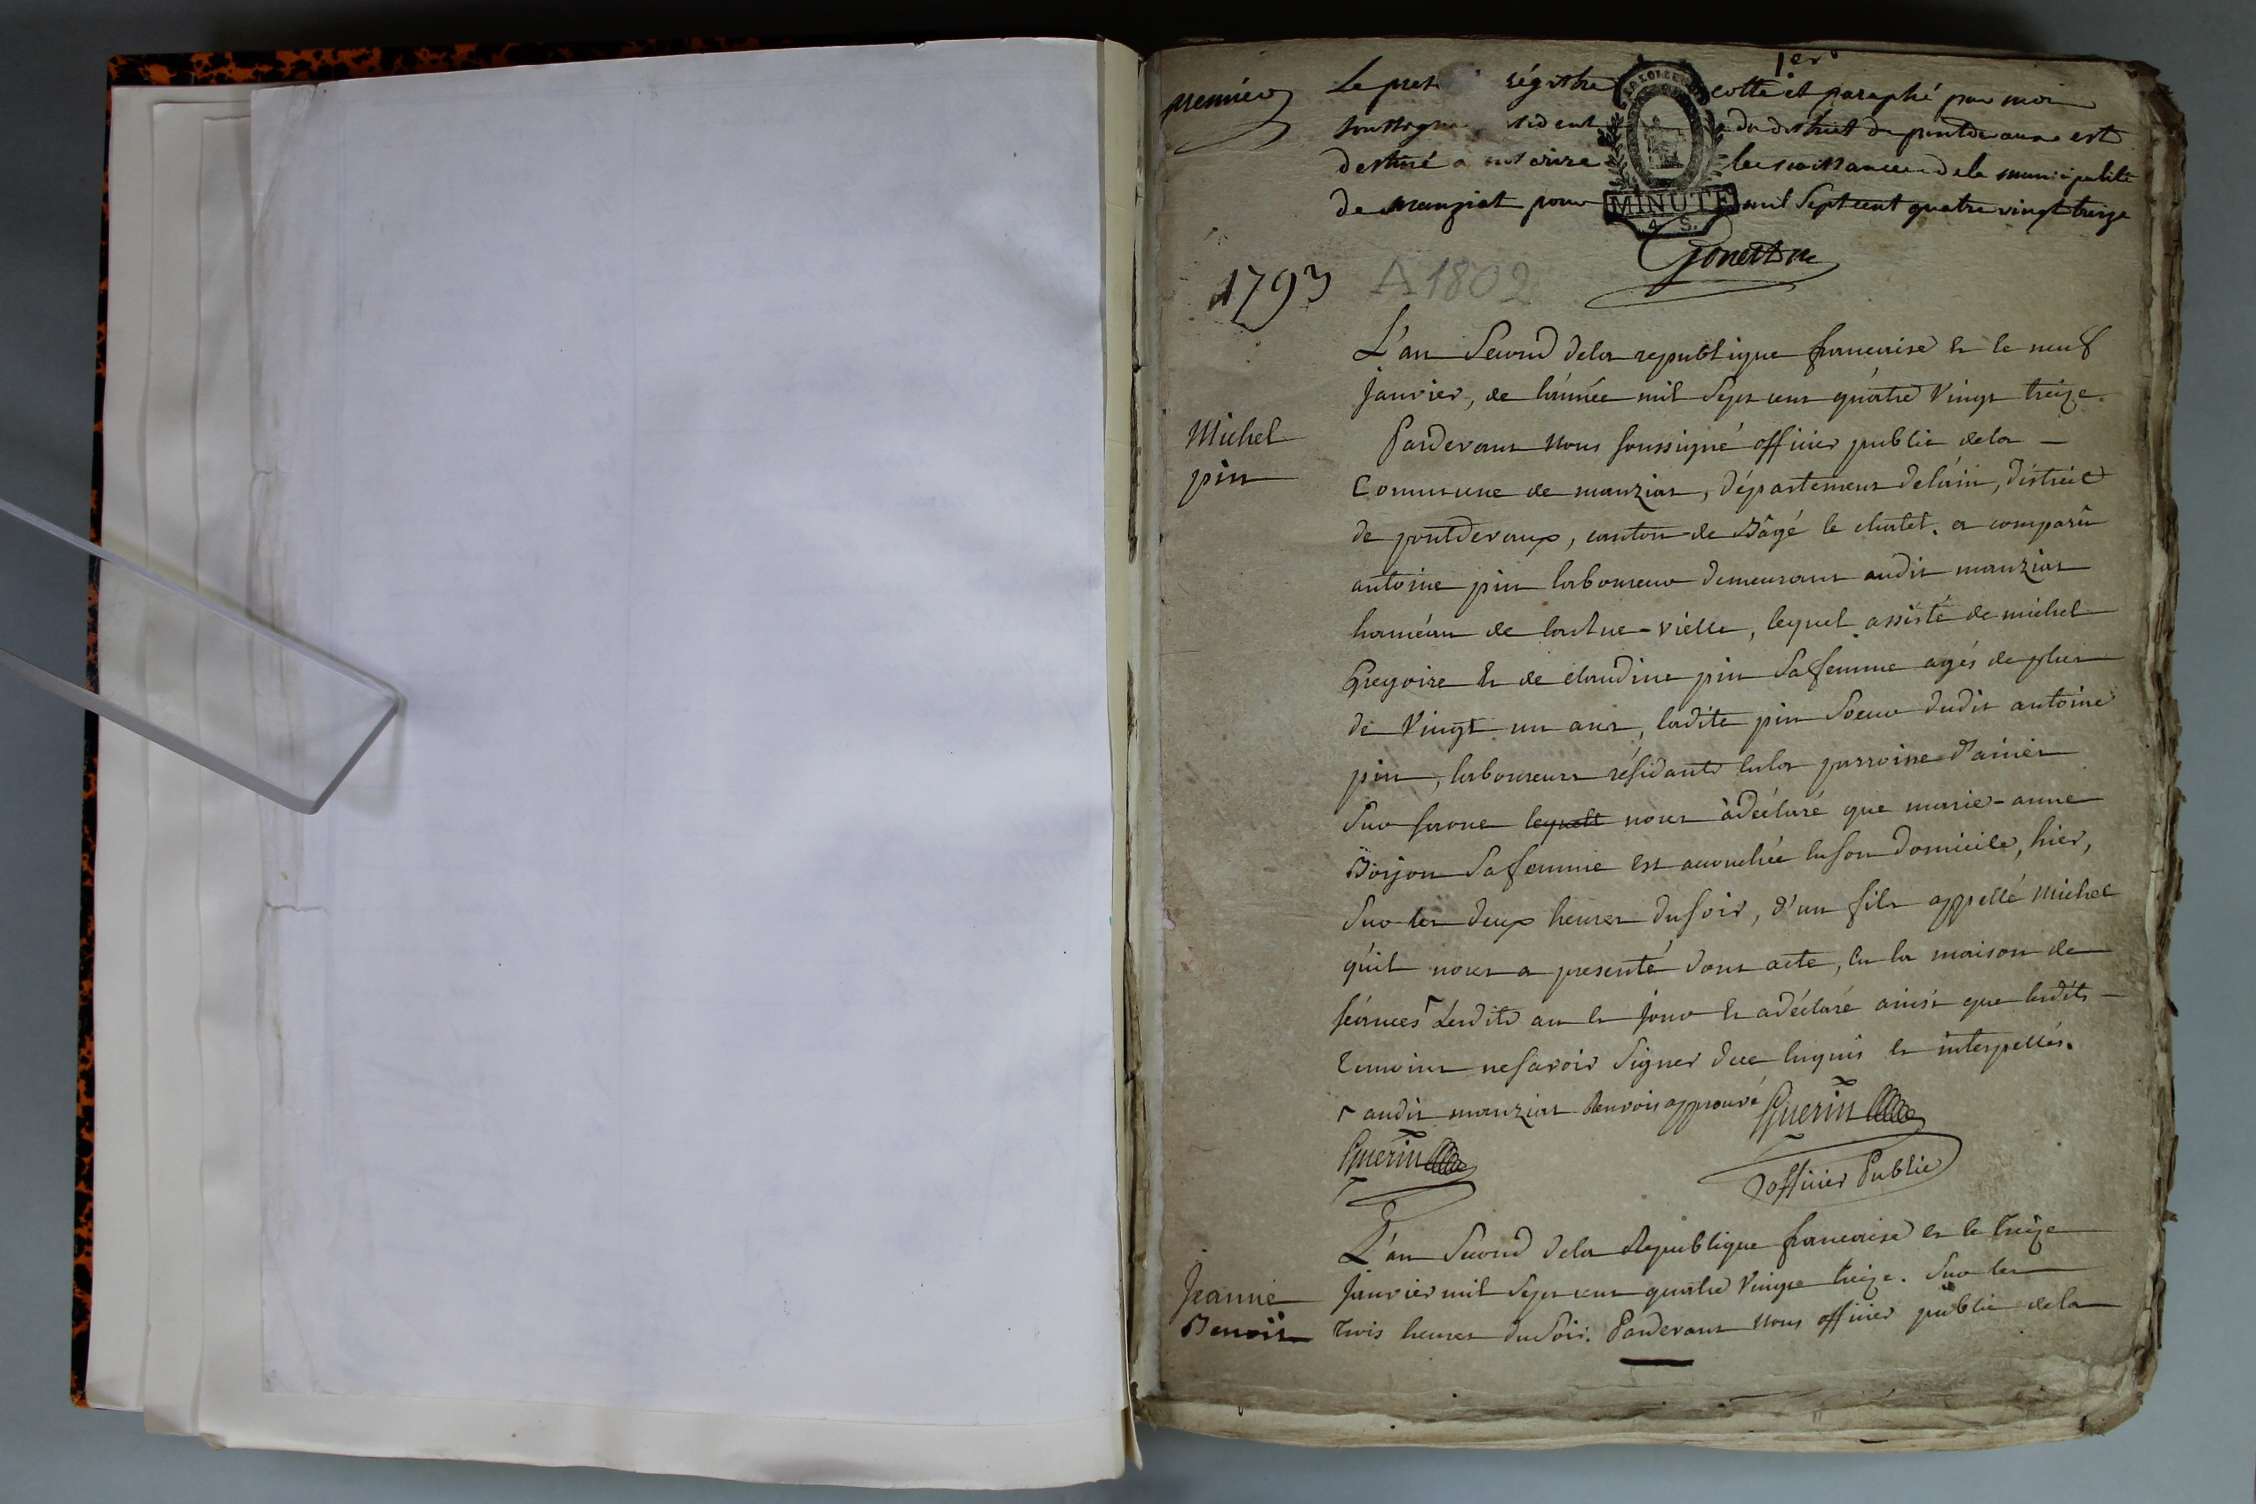 1er
premier
Le pres régistre cotté et paraphé par moi
soussigné sident du district de pontdevaux est
destiné a inscrire les naissances de la municipalité
de manziat pour mil Sept cent quatre vingt treize
MINUTE
4 S.
1793
A 1802
L'an Second dela republique francaise & le neuf
Janvier, de l'année mil Sept cent quatre Vingt treize.
Michel
pin
Pardevant Nous soussigné officier public dela
Commune de manziat, département de l'ain, district
de pontdevaux, canton de Bâgé le chatel. a comparu
antoine pin laboureur demeurant audit manziat
haméau de la rue-vielle, lequel assisté de michel
Gregoire & de claudine pin Sa femme agés de plus
de Vingt un ans, ladite pin Soeur dudit antoine
pin, laboureurs résidants en la parroisse d'
Sur saone lequel nous a déclaré que marie-anne
Boyon Sa femme est accouchée en son Domicile, hier,
Sur les deux heures du soir, d'un fils appellé Michel
qu'il nous a presenté dont acte, en la maison de
séances Lesdits an & jour & a déclaré ainsi que lesdits
temoins ne savoir Signer de ce enquis & interpellés.
audit manziat Renvois approuvé Guerin
Guerin
officier Public
L'an Second dela Republique francaise & le treize
Jeanne
Benoit
Janvier mil Sept cent quatre Vingt treize. Sur les
trois heures du Soir. Pardevant Nous officier public dela